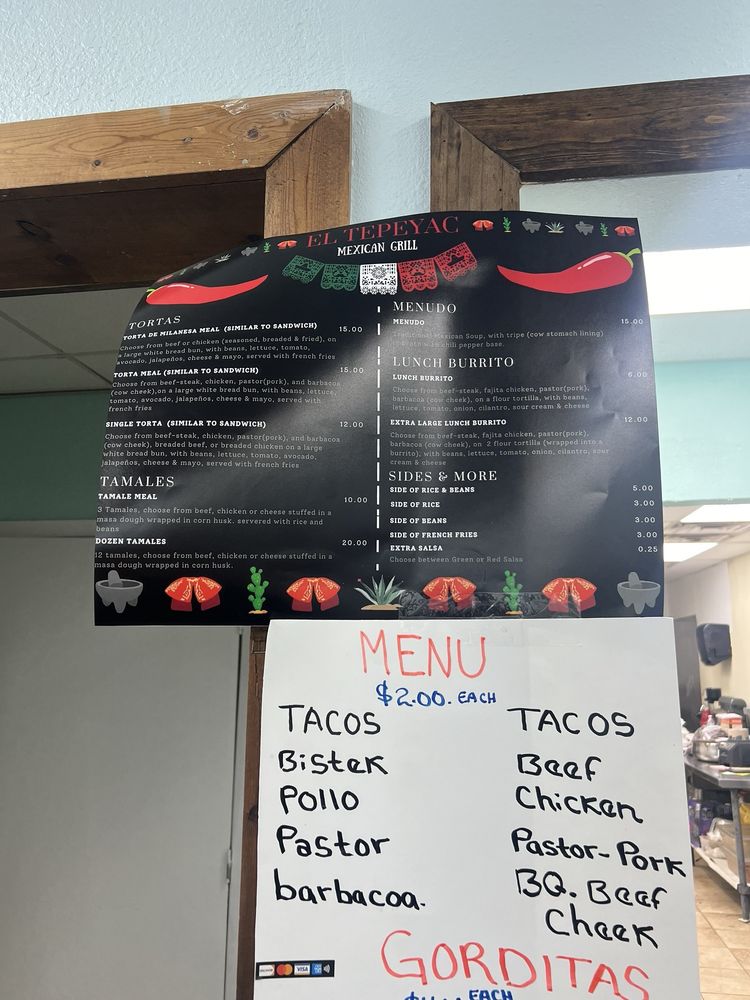 EL TEPEYAC
MEXICAN GRILL
TORTAS
TORTA DE MILANESA MEAL (SIMILAR TO SANDWICH) 15.00
Choose from beef or chicken (seasoned, breaded & fried), on
a large white bread bun, with beans, lettuce, tomato,
avocado, jalapeños, cheese & mayo, served with french fries
TORTA MEAL (SIMILAR TO SANDWICH) 15.00
Choose from beef-steak, chicken, pastor(pork), and barbacoa
(cow cheek),on a large white bread bun, with beans, lettuce,
tomato, avocado, jalapeños, cheese & mayo, served with
french fries
SINGLE TORTA (SIMILAR TO SANDWICH) 12.00
Choose from beef-steak, chicken, pastor(pork), and barbacoa
(cow cheek), breaded beef, or breaded chicken on a large
white bread bun, with beans, lettuce, tomato, avocado,
jalapeños, cheese & mayo, served with french fries
TAMALES
TAMALE MEAL 10.00
3 Tamales, choose from beef, chicken or cheese stuffed in a
masa dough wrapped in corn husk. servered with rice and
beans
DOZEN TAMALES 20.00
12 tamales, choose from beef, chicken or cheese stuffed in a
masa dough wrapped in corn husk.
MENUDO
MENUDO 15.00
Traditional Mexican Soup, with tripe (cow stomach lining)
chili pepper base.
LUNCH BURRITO
LUNCH BURRITO 6.00
Choose from beef-steak, fajita chicken, pastor(pork),
barbacoa (cow cheek), on a flour tortilla, with beans,
lettuce, tomato, onion, cilantro, sour cream & cheese
EXTRA LARGE LUNCH BURRITO 12.00
Choose from beef-steak, fajita chicken, pastor(pork),
barbacoa (cow cheek), on 2 flour tortilla (wrapped into a
burrito), with beans, lettuce, tomato, onion, cilantro, sour
cream & cheese
SIDES & MORE
SIDE OF RICE & BEANS 5.00
SIDE OF RICE 3.00
SIDE OF BEANS 3.00
SIDE OF FRENCH FRIES 3.00
EXTRA SALSA 0.25
Choose between Green or Red Salsa
MENU
$2.00. EACH
TACOS
Bistek
Pollo
Pastor
barbacoa.
TACOS
Beef
Chicken
Pastor-Pork
BQ. Beef
Cheek
GORDITAS
EACH
VISA